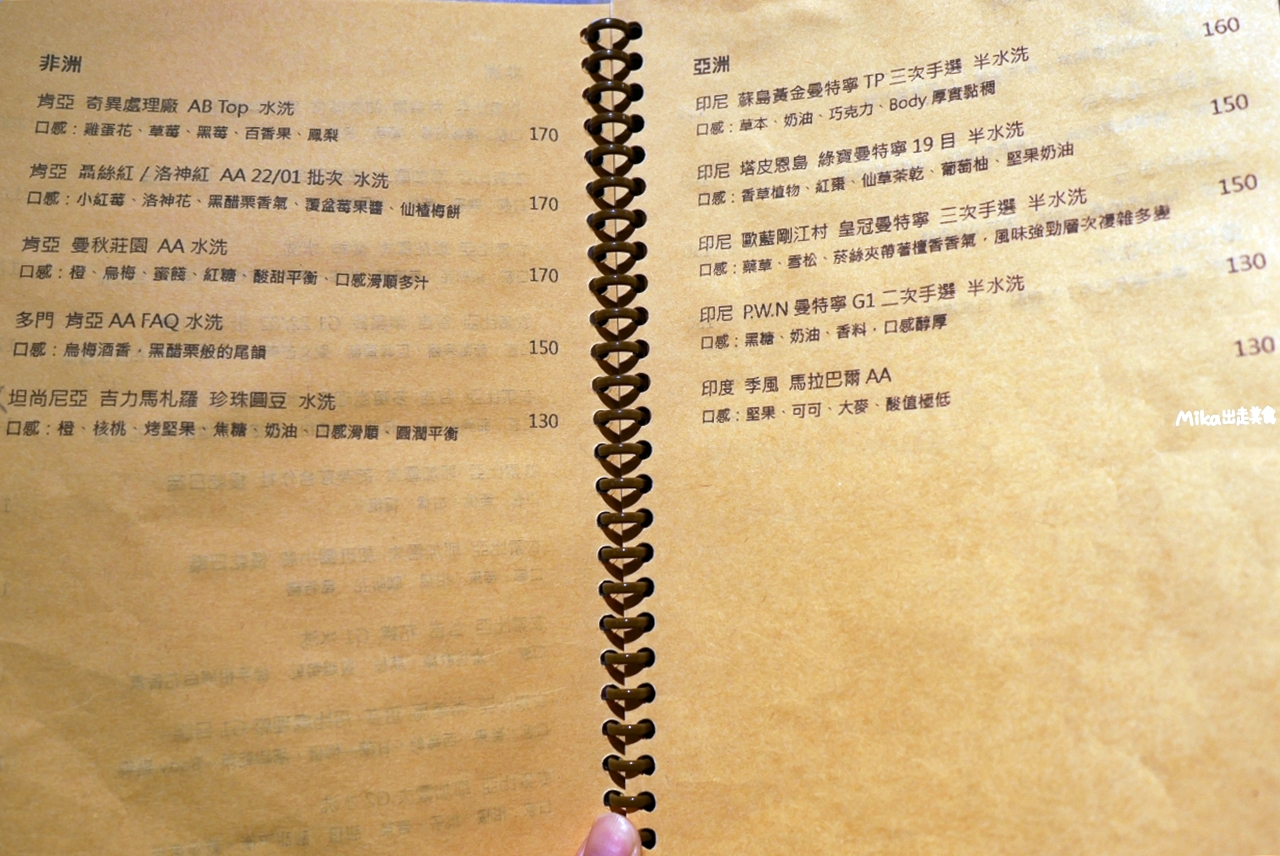 非洲
肯亞 奇異處理廠 AB Top 水洗
口感：雞蛋花、草莓、黑莓、百香果、鳳梨 170
肯亞 聶絲紅 / 洛神紅 AA 22/01 批次 水洗
口感：小紅莓、洛神花、黑醋栗香氣、覆盆莓果醬、仙楂梅餅 170
肯亞 曼秋莊園 AA 水洗
口感：橙、烏梅、蜜餞、紅糖、酸甜平衡、口感滑順多汁 170
多門 肯亞 AA FAQ 水洗
口感：烏梅酒香，黑醋栗般的尾韻 150
坦尚尼亞 吉力馬札羅 珍珠圓豆 水洗
口感：橙、核桃、烤堅果、焦糖、奶油、口感滑順、圓潤平衡 130
亞洲
印尼 蘇島黃金曼特寧 TP 三次手選 半水洗 160
口感：草本、奶油、巧克力、Body 厚實黏稠
印尼 塔皮恩島 綠寶曼特寧 19 目 半水洗 150
口感：香草植物、紅棗、仙草茶乾、葡萄柚、堅果奶油
印尼 歐藍剛江村 皇冠曼特寧 三次手選 半水洗 150
口感：藥草、雪松、菸絲夾帶著檀香香氣，風味強勁層次複雜多變
印尼 P.W.N 曼特寧 G1 二次手選 半水洗 130
口感：黑糖、奶油、香料，口感醇厚
印度 季風 馬拉巴爾 AA 130
口感：堅果、可可、大麥、酸值極低
Mika出走美食